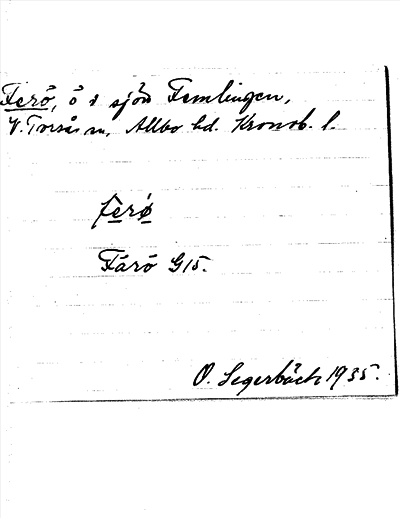 Ferö, ö i sjön Femlingen,
V. Torsås sn, Allbo hd. Kronob. l.
ferö
Färö G15.
O. Segerbäck 1935.